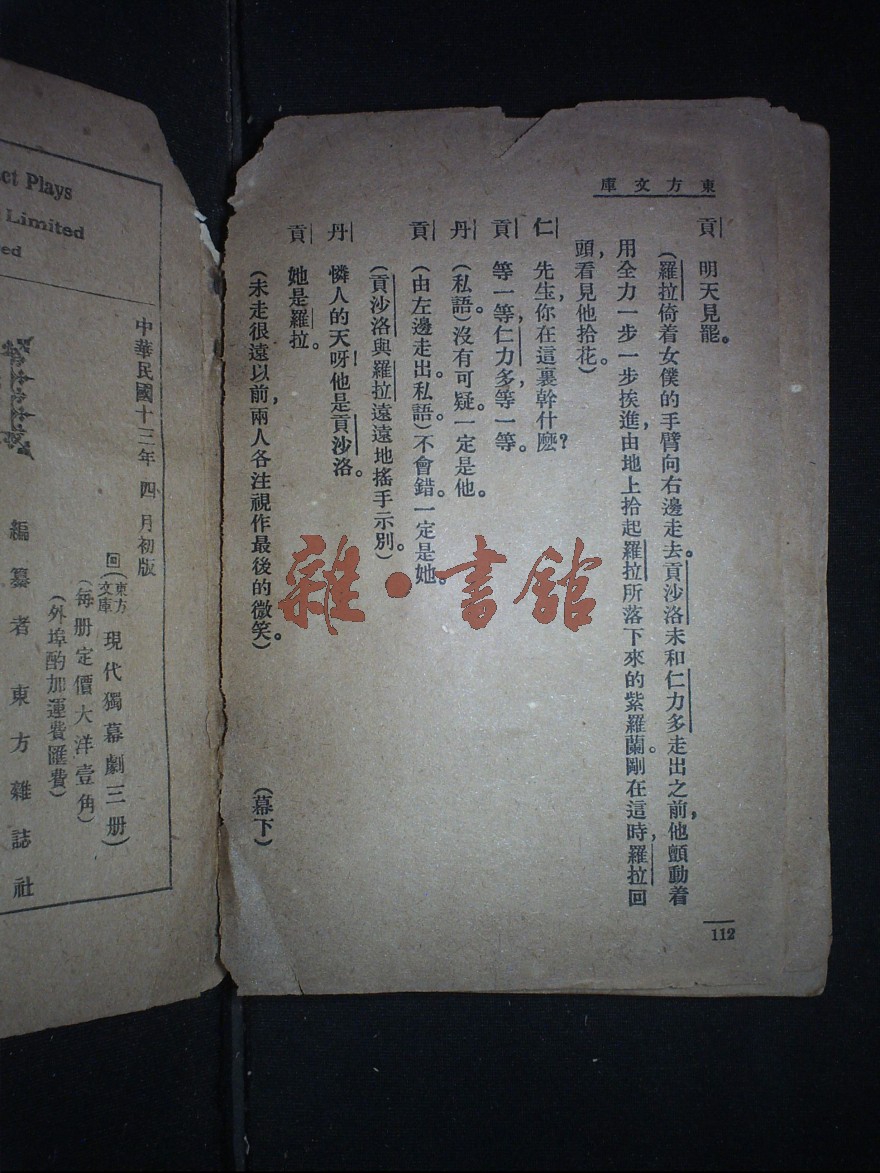 東方文庫
貢 明天見罷。
(羅拉倚着女僕的手臂向右邊走去。貢沙洛未和仁力多走出之前,他顫動着
用全力一步一步挨進,由地上拾起羅拉所落下來的紫羅蘭。剛在這時,羅拉回
頭,看見他拾花。)
仁 先生,你在這裏幹什麽?
貢 等一等,仁力多,等一等。
丹 (私語)沒有可疑。一定是他。
貢 (由左邊走出。私語)不會錯。一定是她。
(貢沙洛與羅拉遠遠地搖手示別。)
丹 憐人的天呀!他是貢沙洛。
貢 她是羅拉。
(未走很遠以前,兩人各注視作最後的微笑。) (幕下)
112
雜·書館
ct Plays
Limited
ed
中華民國十三年四月初版
回(東方文庫)現代獨幕劇三册)
(每册定價大洋壹角)
(外埠酌加運費匯費)
編纂者 東方雜誌社